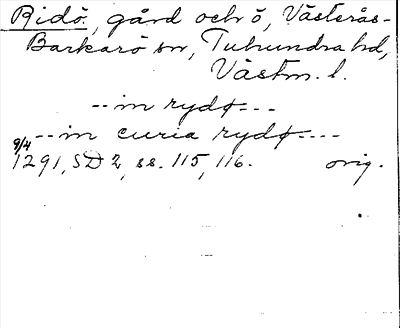 Ridö, gård och ö, Västerås-
Barkarö sn, Tuhundra hd,
Västm. l.
-- in rydø ---
-- in curia rydø ----
9/4
1291, SD 2, ss. 115, 116. orig.